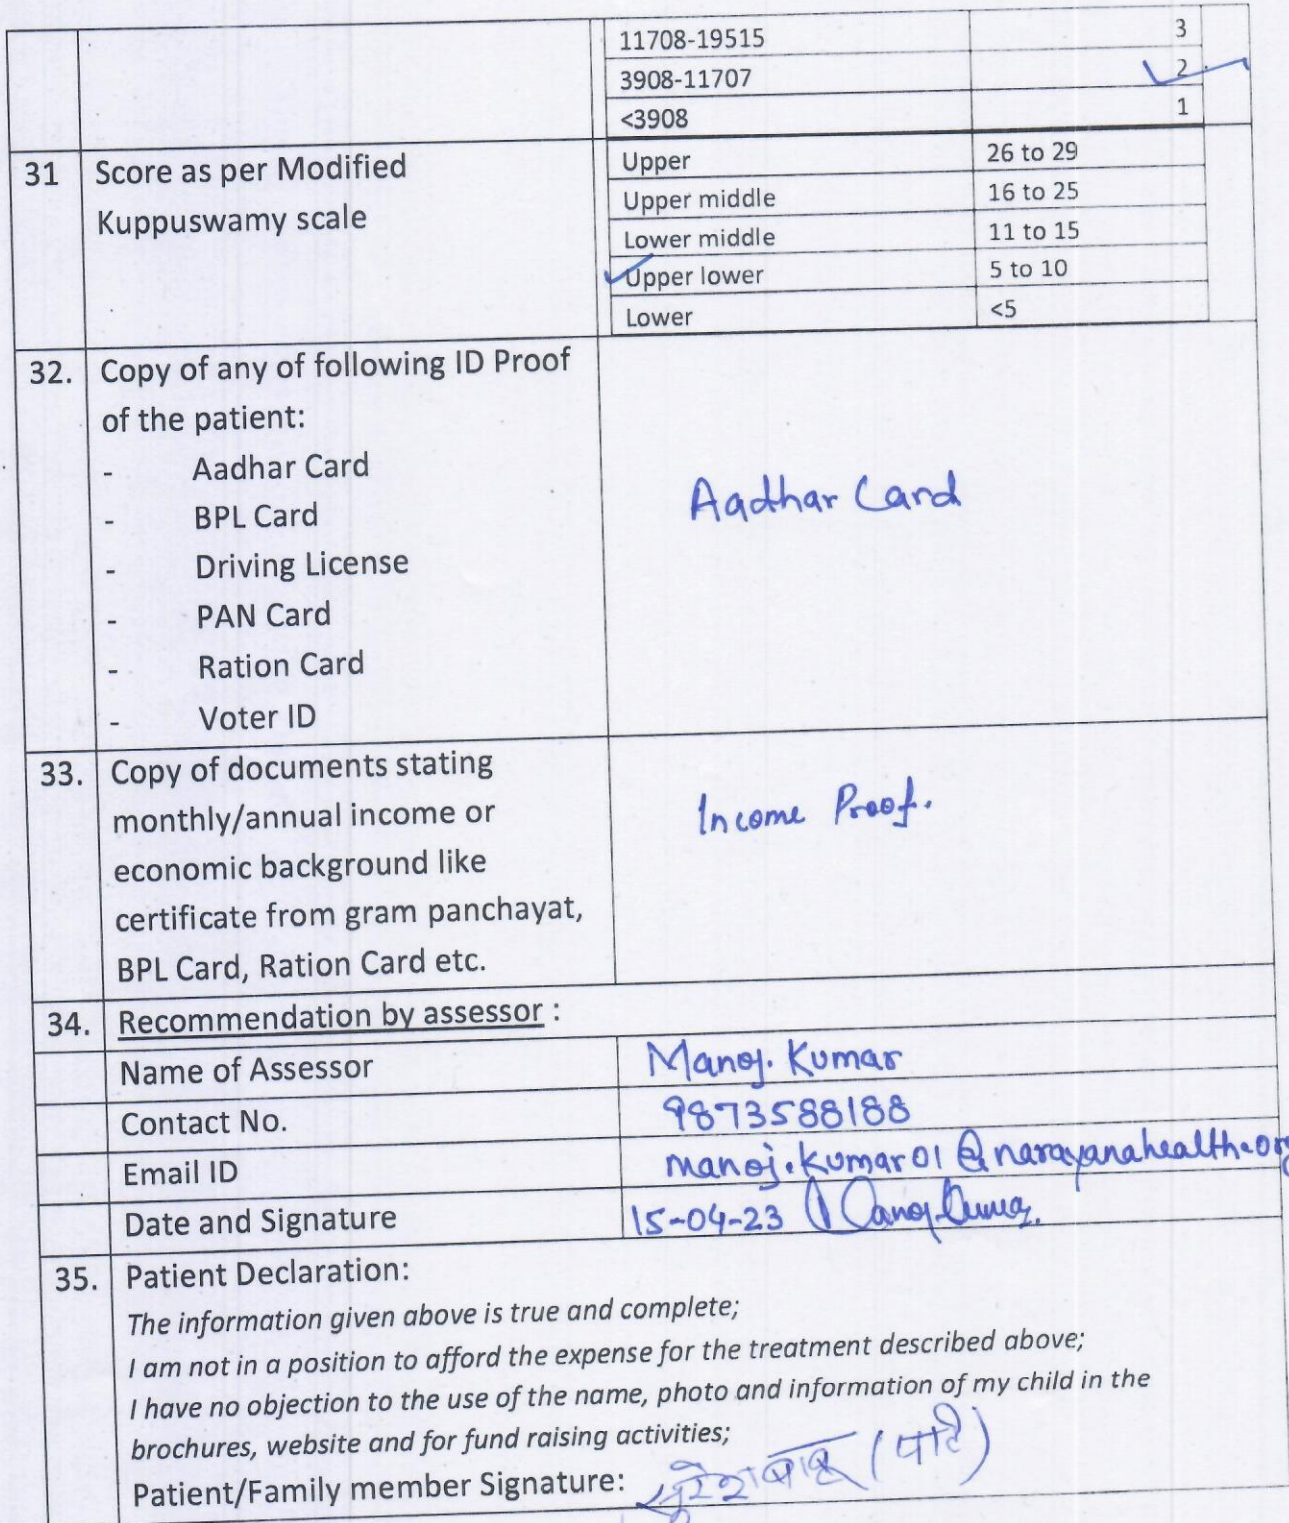 11708-19515 3
3908-11707 2
<3908 1
31 Score as per Modified
Kuppuswamy scale
Upper 26 to 29
Upper middle 16 to 25
Lower middle 11 to 15
Upper lower 5 to 10
Lower <5
32. Copy of any of following ID Proof
of the patient:
- Aadhar Card
- BPL Card
- Driving License
- PAN Card
- Ration Card
- Voter ID
Aadhar Card
33. Copy of documents stating
monthly/annual income or
economic background like
certificate from gram panchayat,
BPL Card, Ration Card etc.
Income Proof.
34. Recommendation by assessor :
Name of Assessor Manoj. Kumar
Contact No. 9873588188
Email ID manoj.kumar01@narayanahealth.org
Date and Signature 15-04-23 Manoj Kumar.
35. Patient Declaration:
The information given above is true and complete;
I am not in a position to afford the expense for the treatment described above;
I have no objection to the use of the name, photo and information of my child in the
brochures, website and for fund raising activities;
Patient/Family member Signature: